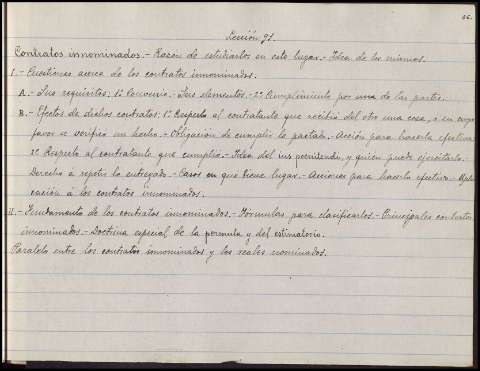 Lección 91.
Contratos innominados.- Razón de estudiarlos en este lugar.- Idea de los mismos.
I.- Cuestiones acerca de los contratos innominados.
A.- Sus requisitos: 1º Convenio.- Sus elementos.- 2º Cumplimiento por una de las partes.
B.- Efectos de dichos contratos: 1º Respecto al contratante que recibió del otro una cosa, o en cuyo
favor se verificó un hecho.- Obligación de cumplir lo pactado.- Acción para hacerla efectiva.
2º Respecto al contratante que cumplió.- Idea del ius penitendi y quien puede ejercitarlo.-
Derecho a repetir lo entregado.- Casos en que tiene lugar.- Acciones para hacerlo efectivo.- Apli-
cación á los contratos innominados.
II.- Fundamento de los contratos innominados.- Fórmulas para clasificarlos.- Principales contratos
innominados.- Doctrina especial de la permuta y del estimatorio.
Paralelo entre los contratos innominados y los reales nominados.